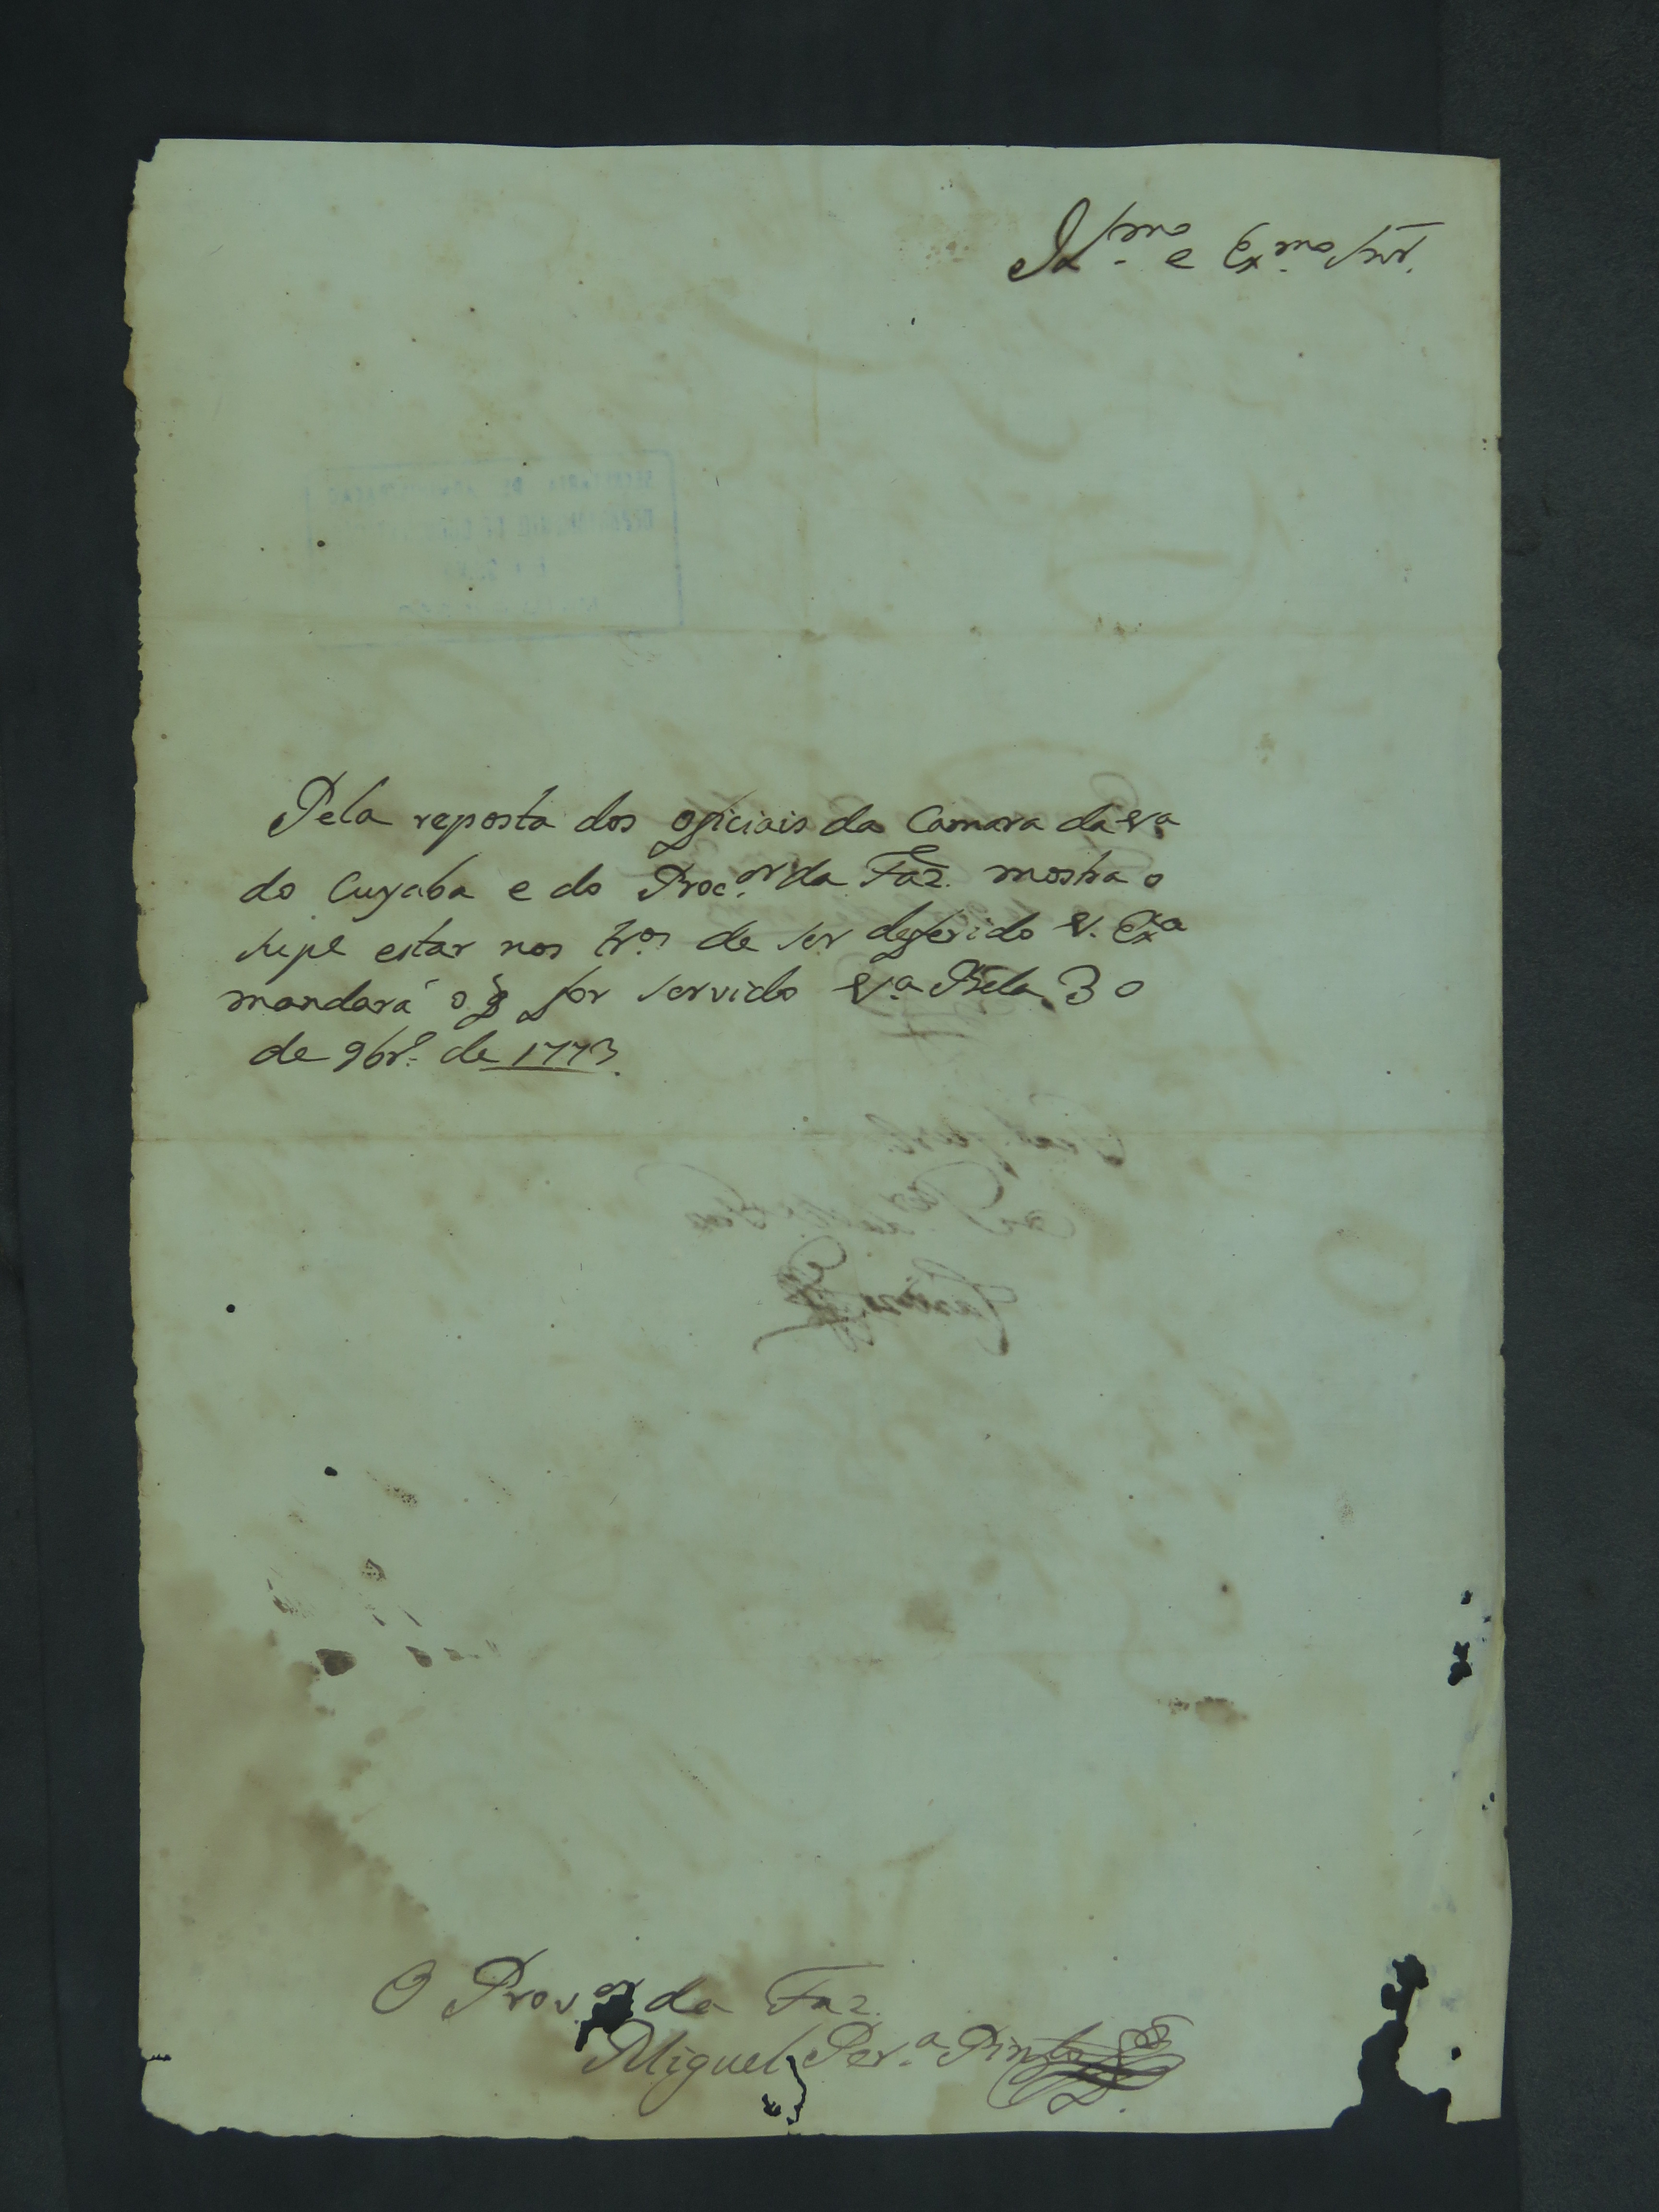 Il.mo e Ex.mo Snr.
Pela reposta dos officiais da Camara da Va
do Cuyaba e do Proc.or da Faz. mostra o
supe estar nos tr.os de ser deferido V. Exa
mandará o q̃ for servido V.a Bela 30
de 9br.o de 1773.
O Prov.or da Faz.
Miguel Per.a Pinto